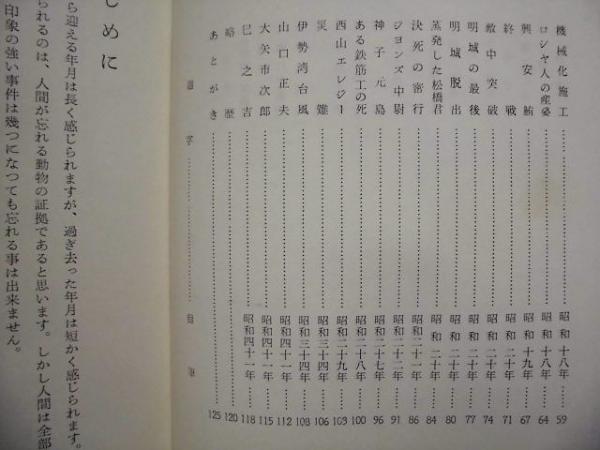 機械化施工 昭和十八年 59
ロシヤ人の産婆 昭和十八年 64
興安鮪 昭和十九年 67
終戦 昭和二十年 71
敵中突破 昭和二十年 74
明城の最後 昭和二十年 77
明城脱出 昭和二十年 80
蒸発した松橋君 昭和二十年 84
決死の密行 昭和二十一年 86
ジョンズ中尉 昭和二十一年 91
神子元島 昭和二十七年 96
ある鉄筋工の死 昭和二十八年 100
西山エレジー 昭和二十九年 103
災難 106
伊勢湾台風 昭和三十四年 108
山口正夫 昭和四十一年 112
大矢市次郎 昭和四十一年 115
巳之吉 昭和四十一年 118
略歴 120
あとがき 125
題字
じめに
ら迎える年月は長く感じられますが、過ぎ去った年月は短かく感じられます。
られるのは、人間が忘れる動物の証拠であると思います。しかし人間は全部
印象の強い事件は幾つになっても忘れる事は出来ません。